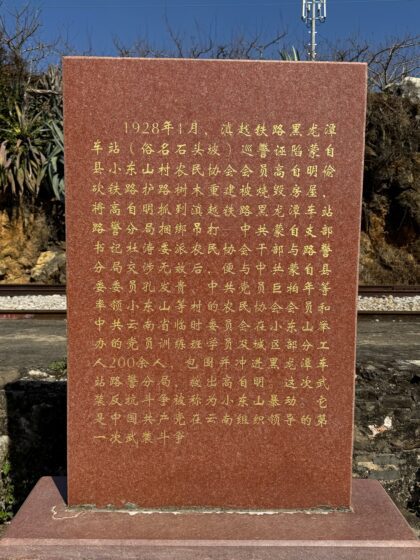 1928年1月，滇越铁路黑龙潭
车站（俗名石头坡）巡警诬陷蒙自
县小东山村农民协会会员高自明偷
砍铁路护路树木重建被烧毁房屋，
将高自明抓到滇越铁路黑龙潭车站
路警分局捆绑吊打。中共蒙自支部
书记 涛委派农协会干部与路警
分局交涉无 后，
委委员孔 中共
率领小东山等村农民协会会员和
中共云南临时 委员会在 举
办的党员训练班学员及城区部分工
人200余人，包围并冲进黑龙潭车
站路警分局，救出高自明。这次武
装反抗斗争被称为小东山暴动。它
是中国共产党在云南组织领导的第
一次武装斗争